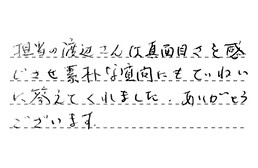 担当の渡辺さんは真面目さを感
じさせ素朴な質問にもていねい
に答えてくれました. ありがとう
ございます